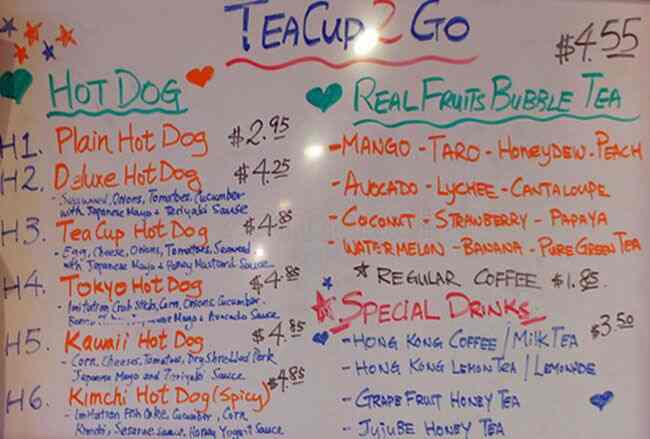 TEACUP 2 GO
$4.55
HOT DOG
H1. Plain Hot Dog $2.95
H2. Deluxe Hot Dog $4.25
- Seaweed, Onions, Tomatoes, Cucumber
with Japanese Mayo & Teriyaki Sause
H3. Tea Cup Hot Dog $4.85
- Egg, Cheese, Onions, Tomatoes, Seaweed
with Japanese Mayo & Honey Mustard Sauce
H4. Tokyo Hot Dog $4.85
- Imitation Crab Sticks, Corn, Onions, Cucumber
Mayo & Avocado Sauce
H5. Kawaii Hot Dog $4.85
- Corn, Cheeses, Tomatoes, Dry Shredded Pork
Japanese Mayo and Teriyaki Sauce
H6. Kimchi Hot Dog (Spicy) $4.85
- Imitation Fish Cake, Cucumber, Corn
Kimchi, Sesame sauce, Honey Yogurt Sauce
REAL FRUITS BUBBLE TEA
- MANGO - TARO - HONEYDEW - PEACH
- AVOCADO - LYCHEE - CANTALOUPE
- COCONUT - STRAWBERRY - PAPAYA
- WATERMELON - BANANA - PURE GREEN TEA
* REGULAR COFFEE $1.85
SPECIAL DRINKS $3.50
- HONG KONG COFFEE / MILK TEA
- HONG KONG LEMON TEA / LEMONADE
- GRAPE FRUIT HONEY TEA
- JUJUBE HONEY TEA